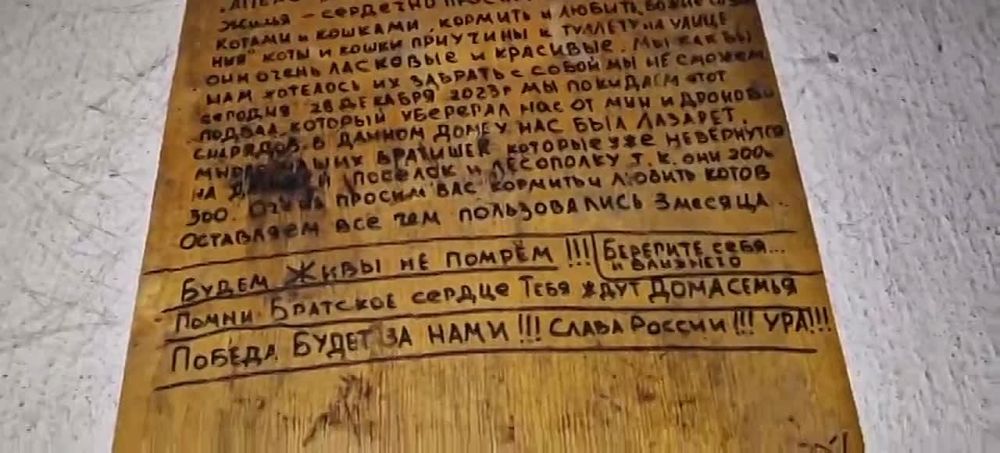 ЖИЛЬЯ - СЕРДЕЧНО
КОТАМИ И КОШКАМИ, КОРМИТЬ И ЛЮБИТЬ, БОЖИЕ
НИЯ" КОТЫ И КОШКИ ПРИУЧИНЫ К ТУАЛЕТУ НА УЛИЦЕ
ОНИ ОЧЕНЬ ЛАСКОВЫЕ И КРАСИВЫЕ. МЫ КАК БЫ
НАМ ХОТЕЛОСЬ ИХ ЗАБРАТЬ С СОБОЙ МЫ НЕ СМОЖЕМ
СЕГОДНЯ 28 ДЕКАБРЯ 2023Г МЫ ПОКИДАЕМ ЭТОТ
ПОДВАЛ КОТОРЫЙ УБЕРЕГАЛ НАС ОТ МИН И ДРОНОВ И
СНАРЯДОВ. В ДАННОМ ДОМЕ У НАС БЫЛ ЛАЗАРЕТ.
БРАТИШЕК КОТОРЫЕ УЖЕ НЕВЕРНУТСЯ
НА ПОСЁЛОК И ЛЕСОПОЛКУ Т.К. ОНИ 200Е
300. ПРОСИМ ВАС КОРМИТЬ И ЛЮБИТЬ КОТОВ
ОСТАВЛЯЕМ ВСЕ ЧЕМ ПОЛЬЗОВАЛИСЬ 3 МЕСЯЦА..
БУДЕМ ЖИВЫ НЕ ПОМРЁМ !!!
БЕРЕГИТЕ СЕБЯ...
И БЛИЖНЕГО
ПОМНИ БРАТСКОЕ СЕРДЦЕ ТЕБЯ ЖДУТ ДОМА СЕМЬЯ
ПОБЕДА БУДЕТ ЗА НАМИ !!! СЛАВА РОССИИ !!! УРА!!!